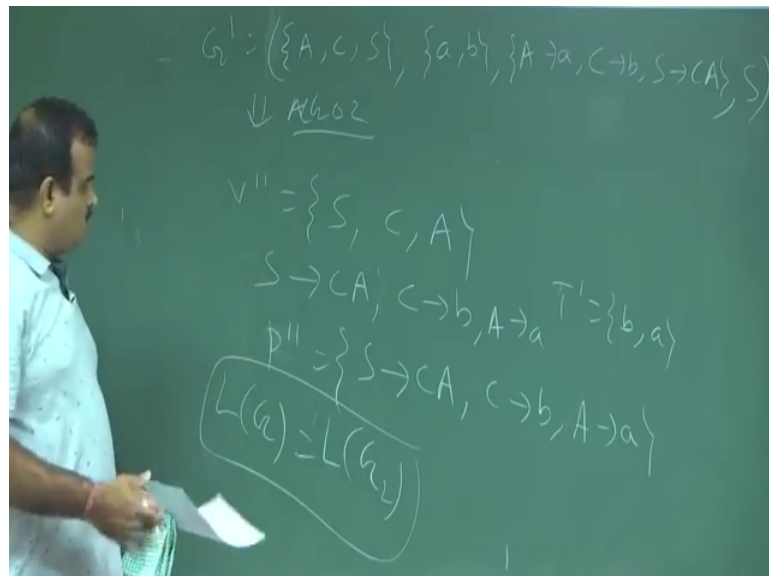 G' = ({A, C, S}, {a, b}, {A → a, C → b, S → CA}, S)
⇓ ALGO2
V'' = {S, C, A}
S → CA, C → b, A → a T' = {b, a}
P'' = {S → CA, C → b, A → a}
L(G) = L(G₂)